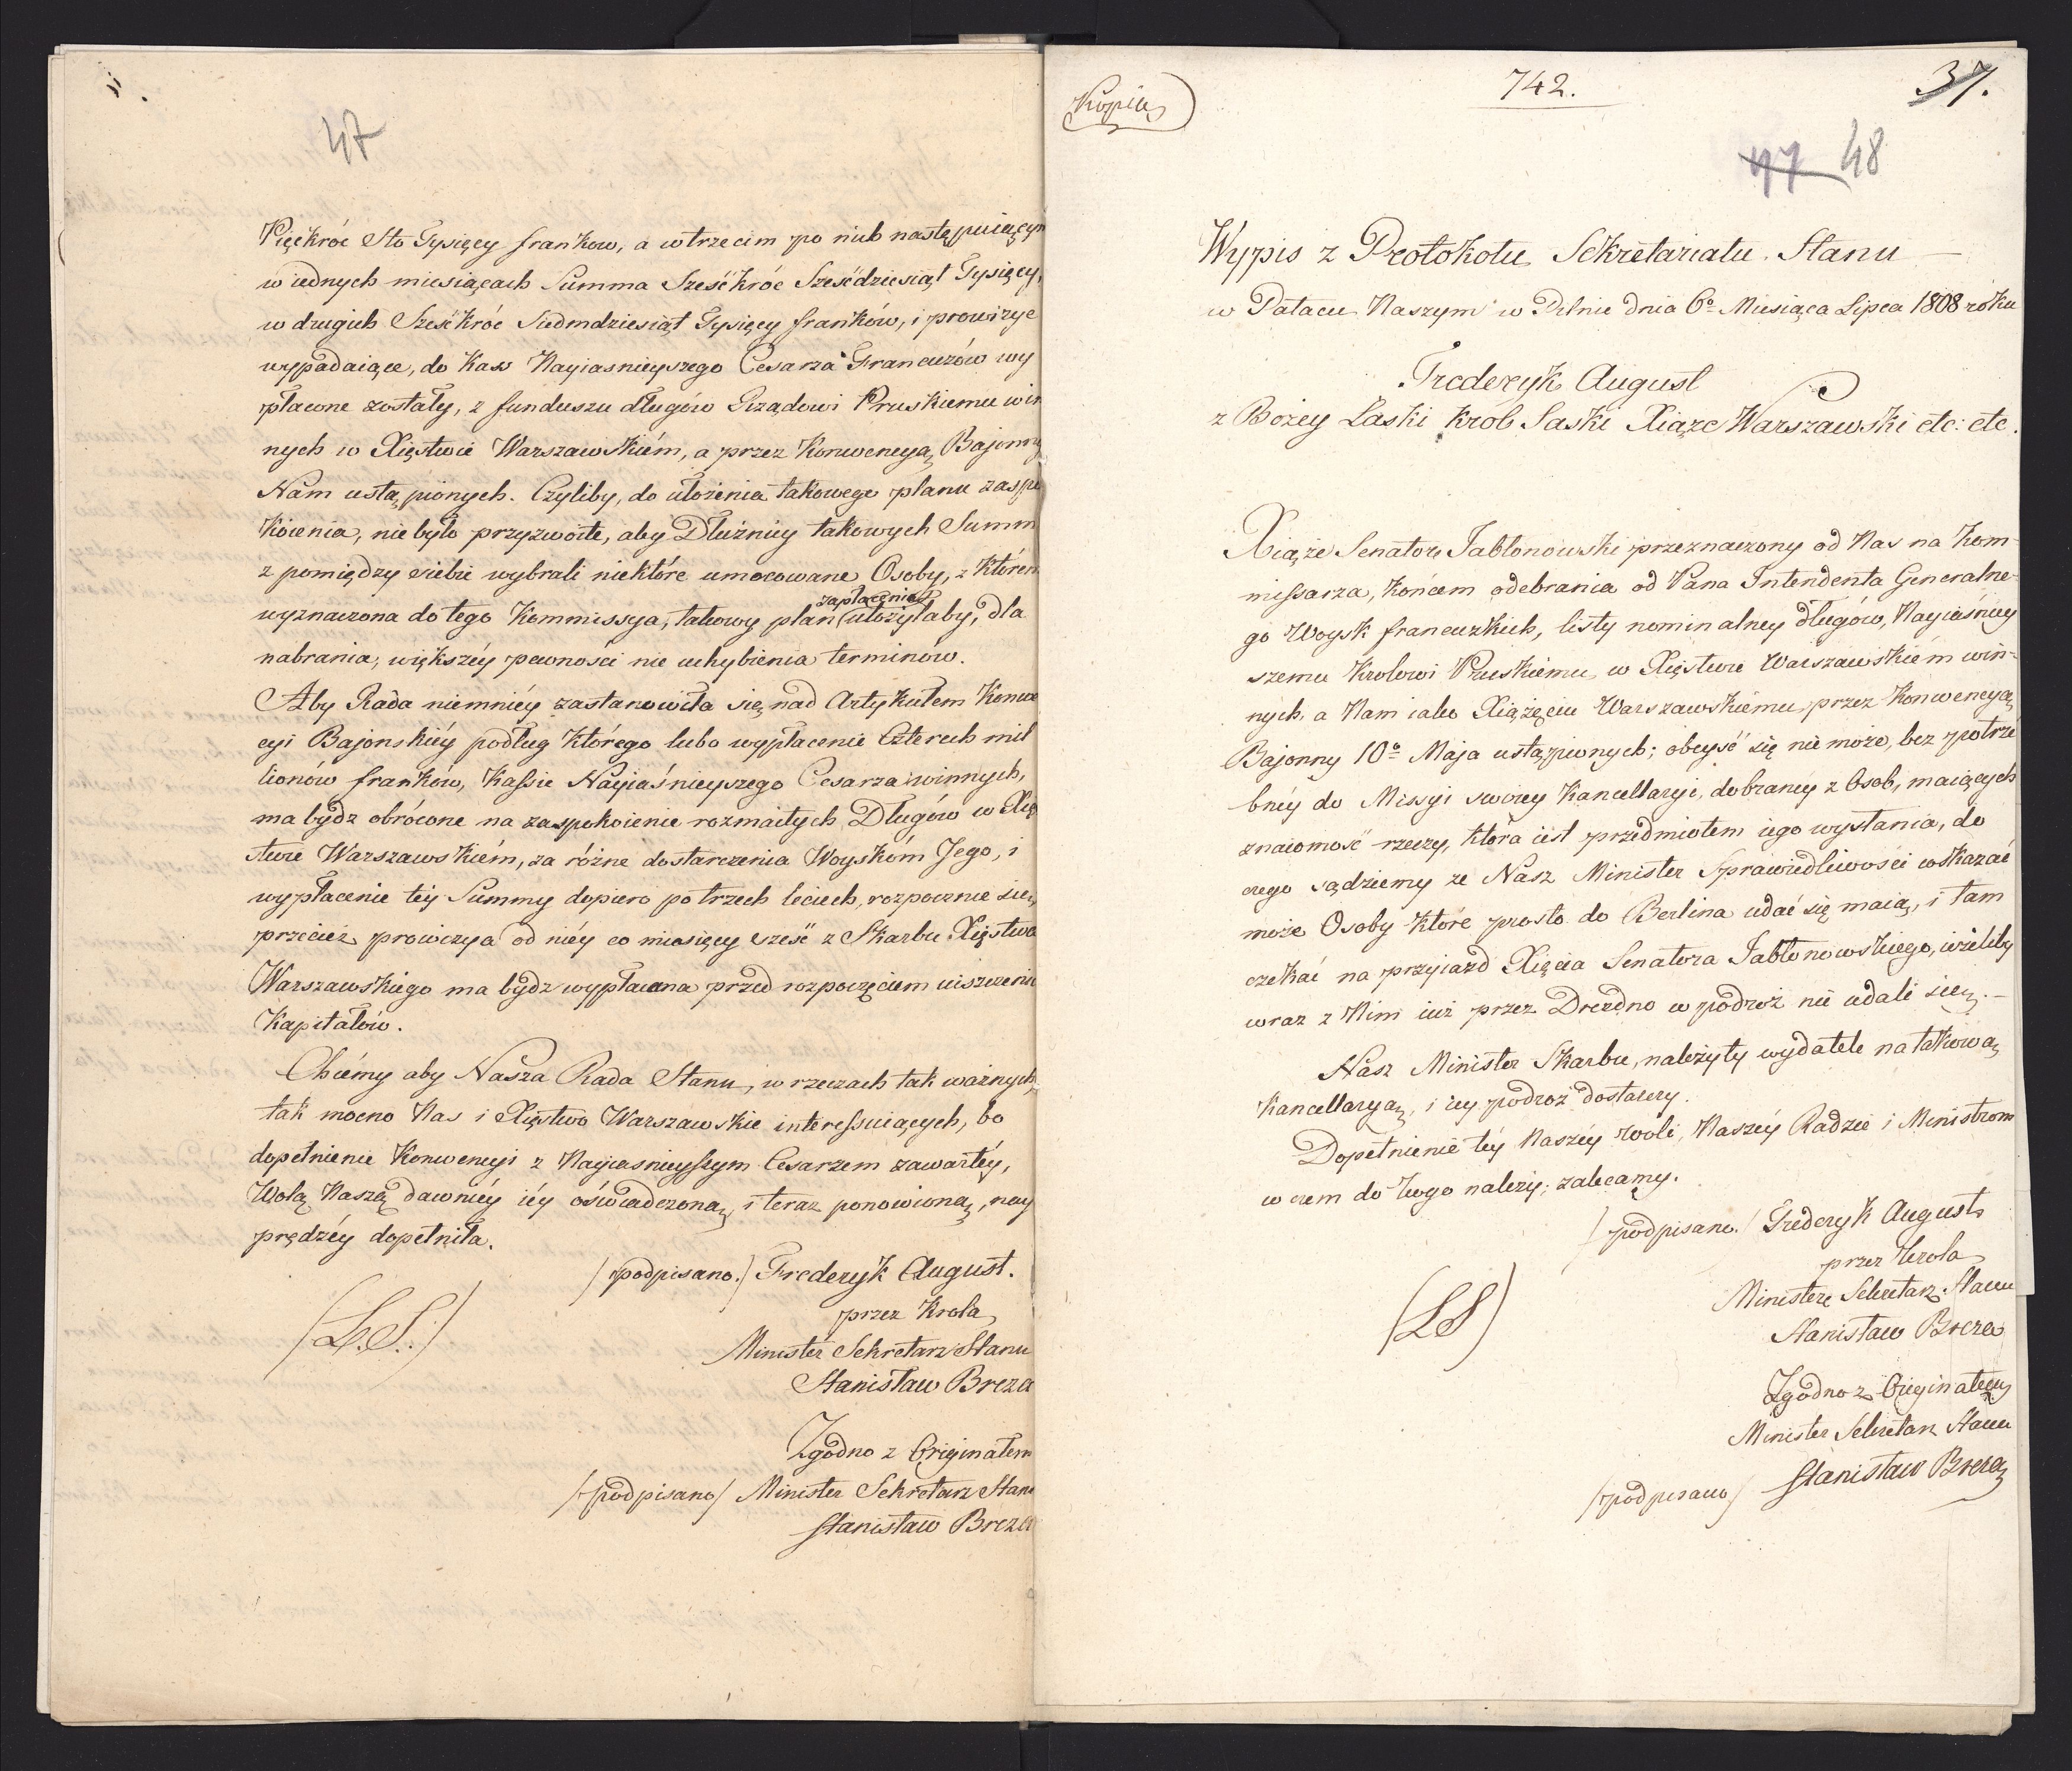 47
Pięćkróć Sto Tysięcy frankow, a w trzecim po nich następuiącym
w iednych miesiącach Summa Sześćkróć Sześćdziesiąt Tysięcy,
w drugich Sześćkróć Siedmdziesiąt Tysięcy franków, i prowizye
wypadaiące, do Kass Nayiasnieyszego Cesarza Francuzów wy
płacone zostały, z funduszu długów Rządowi Pruskiemu win
nych w Xięstwie Warszawskiém, a przez Konwencyą Bajonny
Nam ustąpionych. Czyliby, do ułożenia takowego planu zaspo
koienia, nie było przyzwoite, aby Dłużnicy takowych Summ
z pomiędzy siebie wybrali niektóre umocowane Osoby, z którem
wyznaczona do tego Kommissya, takowy plan zapłacenia ułożyłaby, dla
nabrania, większéy pewności nie uchybienia terminów.
Aby Rada niemniéy zastanowiła się nad Artykułem Konwe
cyi Bajonskiéy podług którego lubo wypłacenie Czterech mil
lionów franków, Kassie Nayiaśnieyszego Cesarza winnych,
ma bydz obrócone na zaspokoienie rozmaitych Długów w Xię
stwie Warszawskiém, za różne dostarczenia Woyskóm Jego, i
wypłacenie téy Summy dopiero po trzech leciech, rozpocznie się,
przecież prowizya od niéy co miesięcy sześć z Skarbu Xięstwa
Warszawskiego ma bydz wypłacana przed rozpoczęciem uiszczenia
Kapitałów.
Chcémy aby Nasza Rada Stanu, w rzeczach tak ważnych,
tak mocno Nas i Xięstwo Warszawskie interessuiących, bo
dopełnienie Konwencyi z Nayiasnieyszym Cesarzem zawartéy,
Wolą Naszą dawniéy iéy oświadczoną, i teraz ponowioną, nay
prędzéy dopełniła.
/podpisano./ Frederyk August.
przez Krola
(L.S.)
Minister Sekretarz Stanu
Stanisław Breza
Zgodno z Originałem
/podpisano/ Minister Sekretarz Stanu
Stanisław Breza
Kopia
742.
37.
47 48
Wypis z Protokołu Sekretariatu Stanu
w Pałacu Naszym w Pilnie dnia 6o Miesiąca Lipca 1808 roku
Frederyk August
z Bożey Łaski Krol Saski Xiąże Warszawski etc: etc.
Xiąże Senator Jabłonowski przeznaczony od Nas na Kom-
missarza, końcem odebrania od Pana Intendenta Generalne-
go Woysk francuzkich, listy nominalney długów, Nayiaśniey
szemu Krolowi Pruskiemu, w Xięstwie Warszawskiém win-
nych, a Nam iako Xiążęciu Warszawskiému przez Konwencyą
Bajonny 10o Maja ustąpionych; obeysć się nie może, bez potrze
bnéy do Missyi swoiey Kancellaryi, dobranéy z Osob, maiących
znaiomość rzeczy, która iest przedmiotem iego wysłania, do
czego sądziemy że Nasz Minister Sprawiedliwości wskazać
może Osoby które prosto do Berlina udać się maią, i tam
czekać na przyiazd Xięcia Senatora Jabłonowskiego, ieżeliby
wraz z Nim iuż przez Drezdno w podróż nie udali się. –
Nasz Minister Skarbu, należyty wydatek na takową
Kancellaryą, i iey podroż dostarczy.
Dopełnienie téy Naszéy woli, Naszéy Radzie i Ministrom
w czem do kogo należy; zalecamy.
/podpisano./ Frederyk August
przez Krola
(LS)
Minister Sekretarz Stanu
Stanisław Breza
Zgodno z Originałem
Minister Sekretarz Stanu
/podpisano/ Stanisław Breza